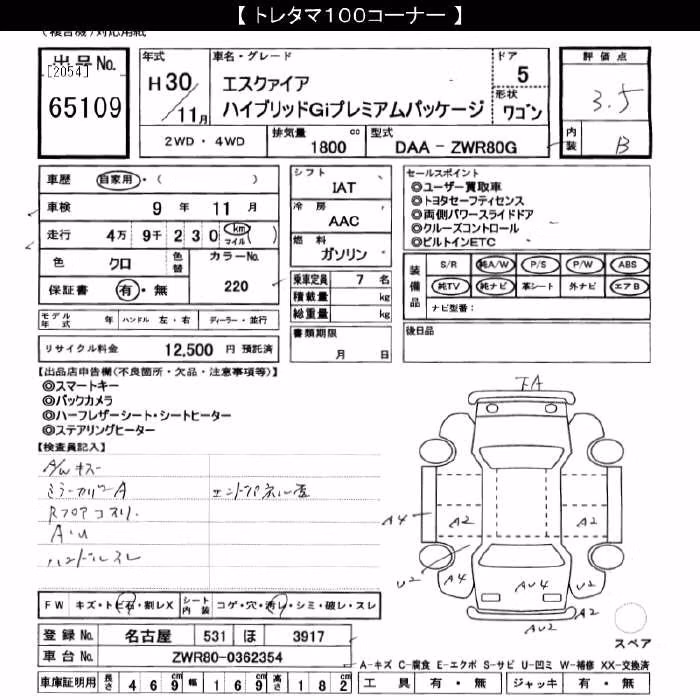 【 トレタマ100コーナー 】
(複合機)対応用紙
出品No.
[2054]
65109
年式
H30/11月
車名・グレード
エスクァイア
ハイブリッドGiプレミアムパッケージ
ドア 5
形状 ワゴン
評価点
3.5
内装 B
2WD・4WD
排気量 1800 cc
型式 DAA-ZWR80G
車歴 自家用・( )
車検 9年 11月
走行 4万 9千 2 3 0 km マイル ( )
色 クロ 色替 カラーNo.
保証書 有・無 220
モデル年式 年 ハンドル 左・右 ディーラー・並行
リサイクル料金 12,500 円 預託済
シフト IAT
冷房 AAC
燃料 ガソリン
乗車定員 7 名
積載量 kg
総重量 kg
書類期限
月 日
セールスポイント
◎ユーザー買取車
◎トヨタセーフティセンス
◎両側パワースライドドア
◎クルーズコントロール
◎ビルトインETC
装備品
S/R 純A/W P/S P/W ABS
純TV 純ナビ 革シート 外ナビ エアB
ナビ型番:
後日品
【出品店申告欄(不良箇所・欠品・注意事項等)】
◎スマートキー
◎バックカメラ
◎ハーフレザーシート・シートヒーター
◎ステアリングヒーター
【検査員記入】
A/Wキズ
ミラーカバーA
エンドパネル歪
Rフロアコスリ
A・U
ハンドルスレ
FW キズ・トビ石・割レX シート内装 コゲ・穴・汚レ・シミ・破レ・スレ
登録No. 名古屋 531 ほ 3917
車台No. ZWR80-0362354
車庫証明用 長さ 4 6 9 cm 幅 1 6 9 cm 高さ 1 8 2 cm
下A
A4
A2
A2
U2
A4
AU4
U2
A2
AU2
スペア
A-キズ C-腐食 E-エクボ S-サビ U-凹ミ W-補修 XX-交換済
工具 有・無 ジャッキ 有・無